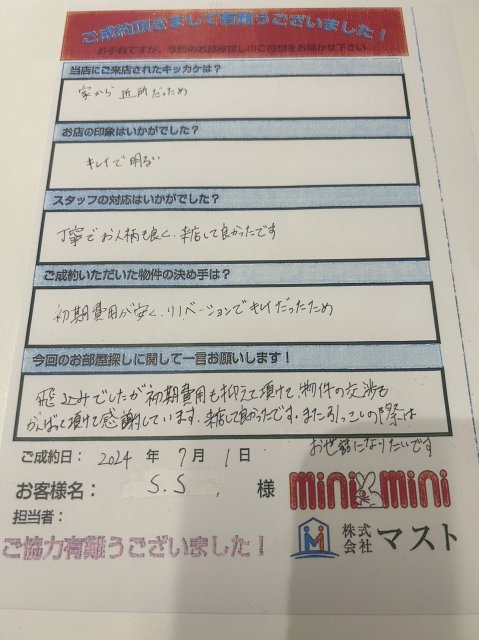 ご成約頂きまして有難うございました！
お手数ですが、今回のお部屋探しのご感想をお聞かせ下さい
当店にご来店されたキッカケは？
家から近所だっため
お店の印象はいかがでした？
キレイで明るい
スタッフの対応はいかがでした？
丁寧でお人柄も良く、来店して良かったです
ご成約いただいた物件の決め手は？
初期費用が安く、リノベーションでキレイだったため
今回のお部屋探しに関して一言お願いします！
飛込みでしたが初期費用も抑えて頂けて、物件の交渉も
がんばって頂けて感謝しています。来店して良かったです。またひっこしの際は
お世話になりたいです
ご成約日： 2024 年 7月 1日
お客様名： S.S 様
mini mini
担当者：
株式会社 マスト
ご協力有難うございました！